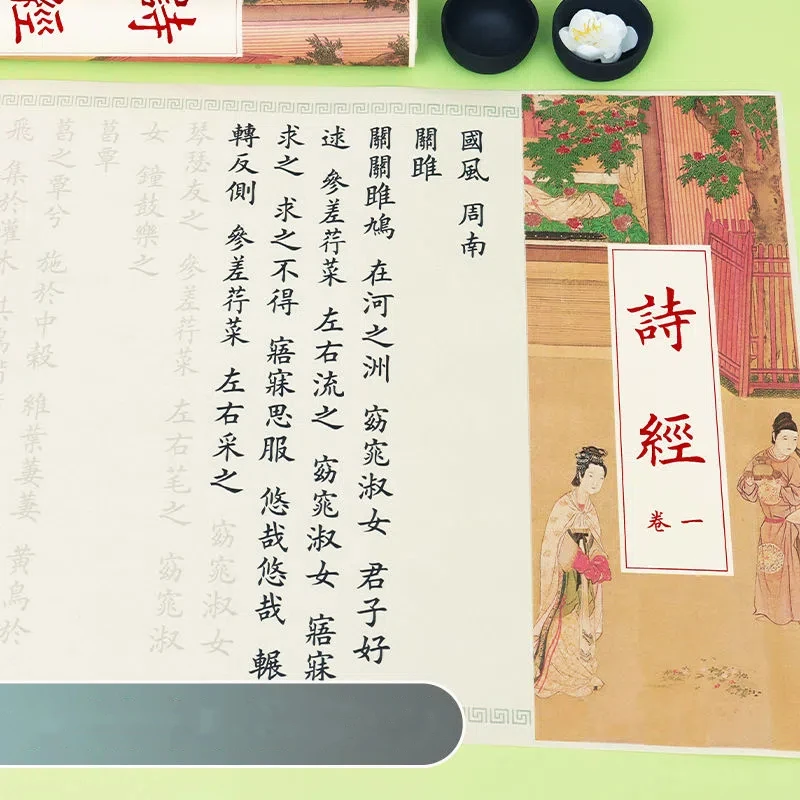 詩經
詩經
卷一
國風 周南
關雎
關關雎鳩 在河之洲 窈窕淑女 君子好
逑 參差荇菜 左右流之 窈窕淑女 寤寐
求之 求之不得 寤寐思服 悠哉悠哉 輾
轉反側 參差荇菜 左右采之 窈窕淑女
琴瑟友之 參差荇菜 左右芼之 窈窕淑
女 鐘鼓樂之
葛覃
葛之覃兮 施於中穀 維葉萋萋 黃鳥於
飛 集於灌木 其鳴喈